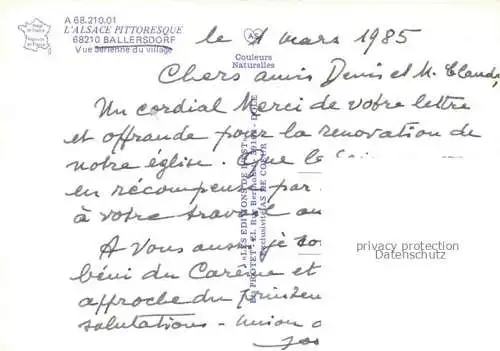 A 68.210.01
L'ALSACE PITTORESQUE
68210 BALLERSDORF
Vue aérienne du village
Couleurs
Naturelles
le 1 mars 1985
Chers amis Denis et M. Claude,
Un cordial Merci de votre lettre
et offrande pour la renovation de
notre église. Que le
en récompense par
à votre travail
A Vous aussi je
béni du Carême et
approche du printem
salutations - union
«LES EDITIONS DE L'EST»
PROTET
AS DE COEUR
privacy protection
Datenschutz